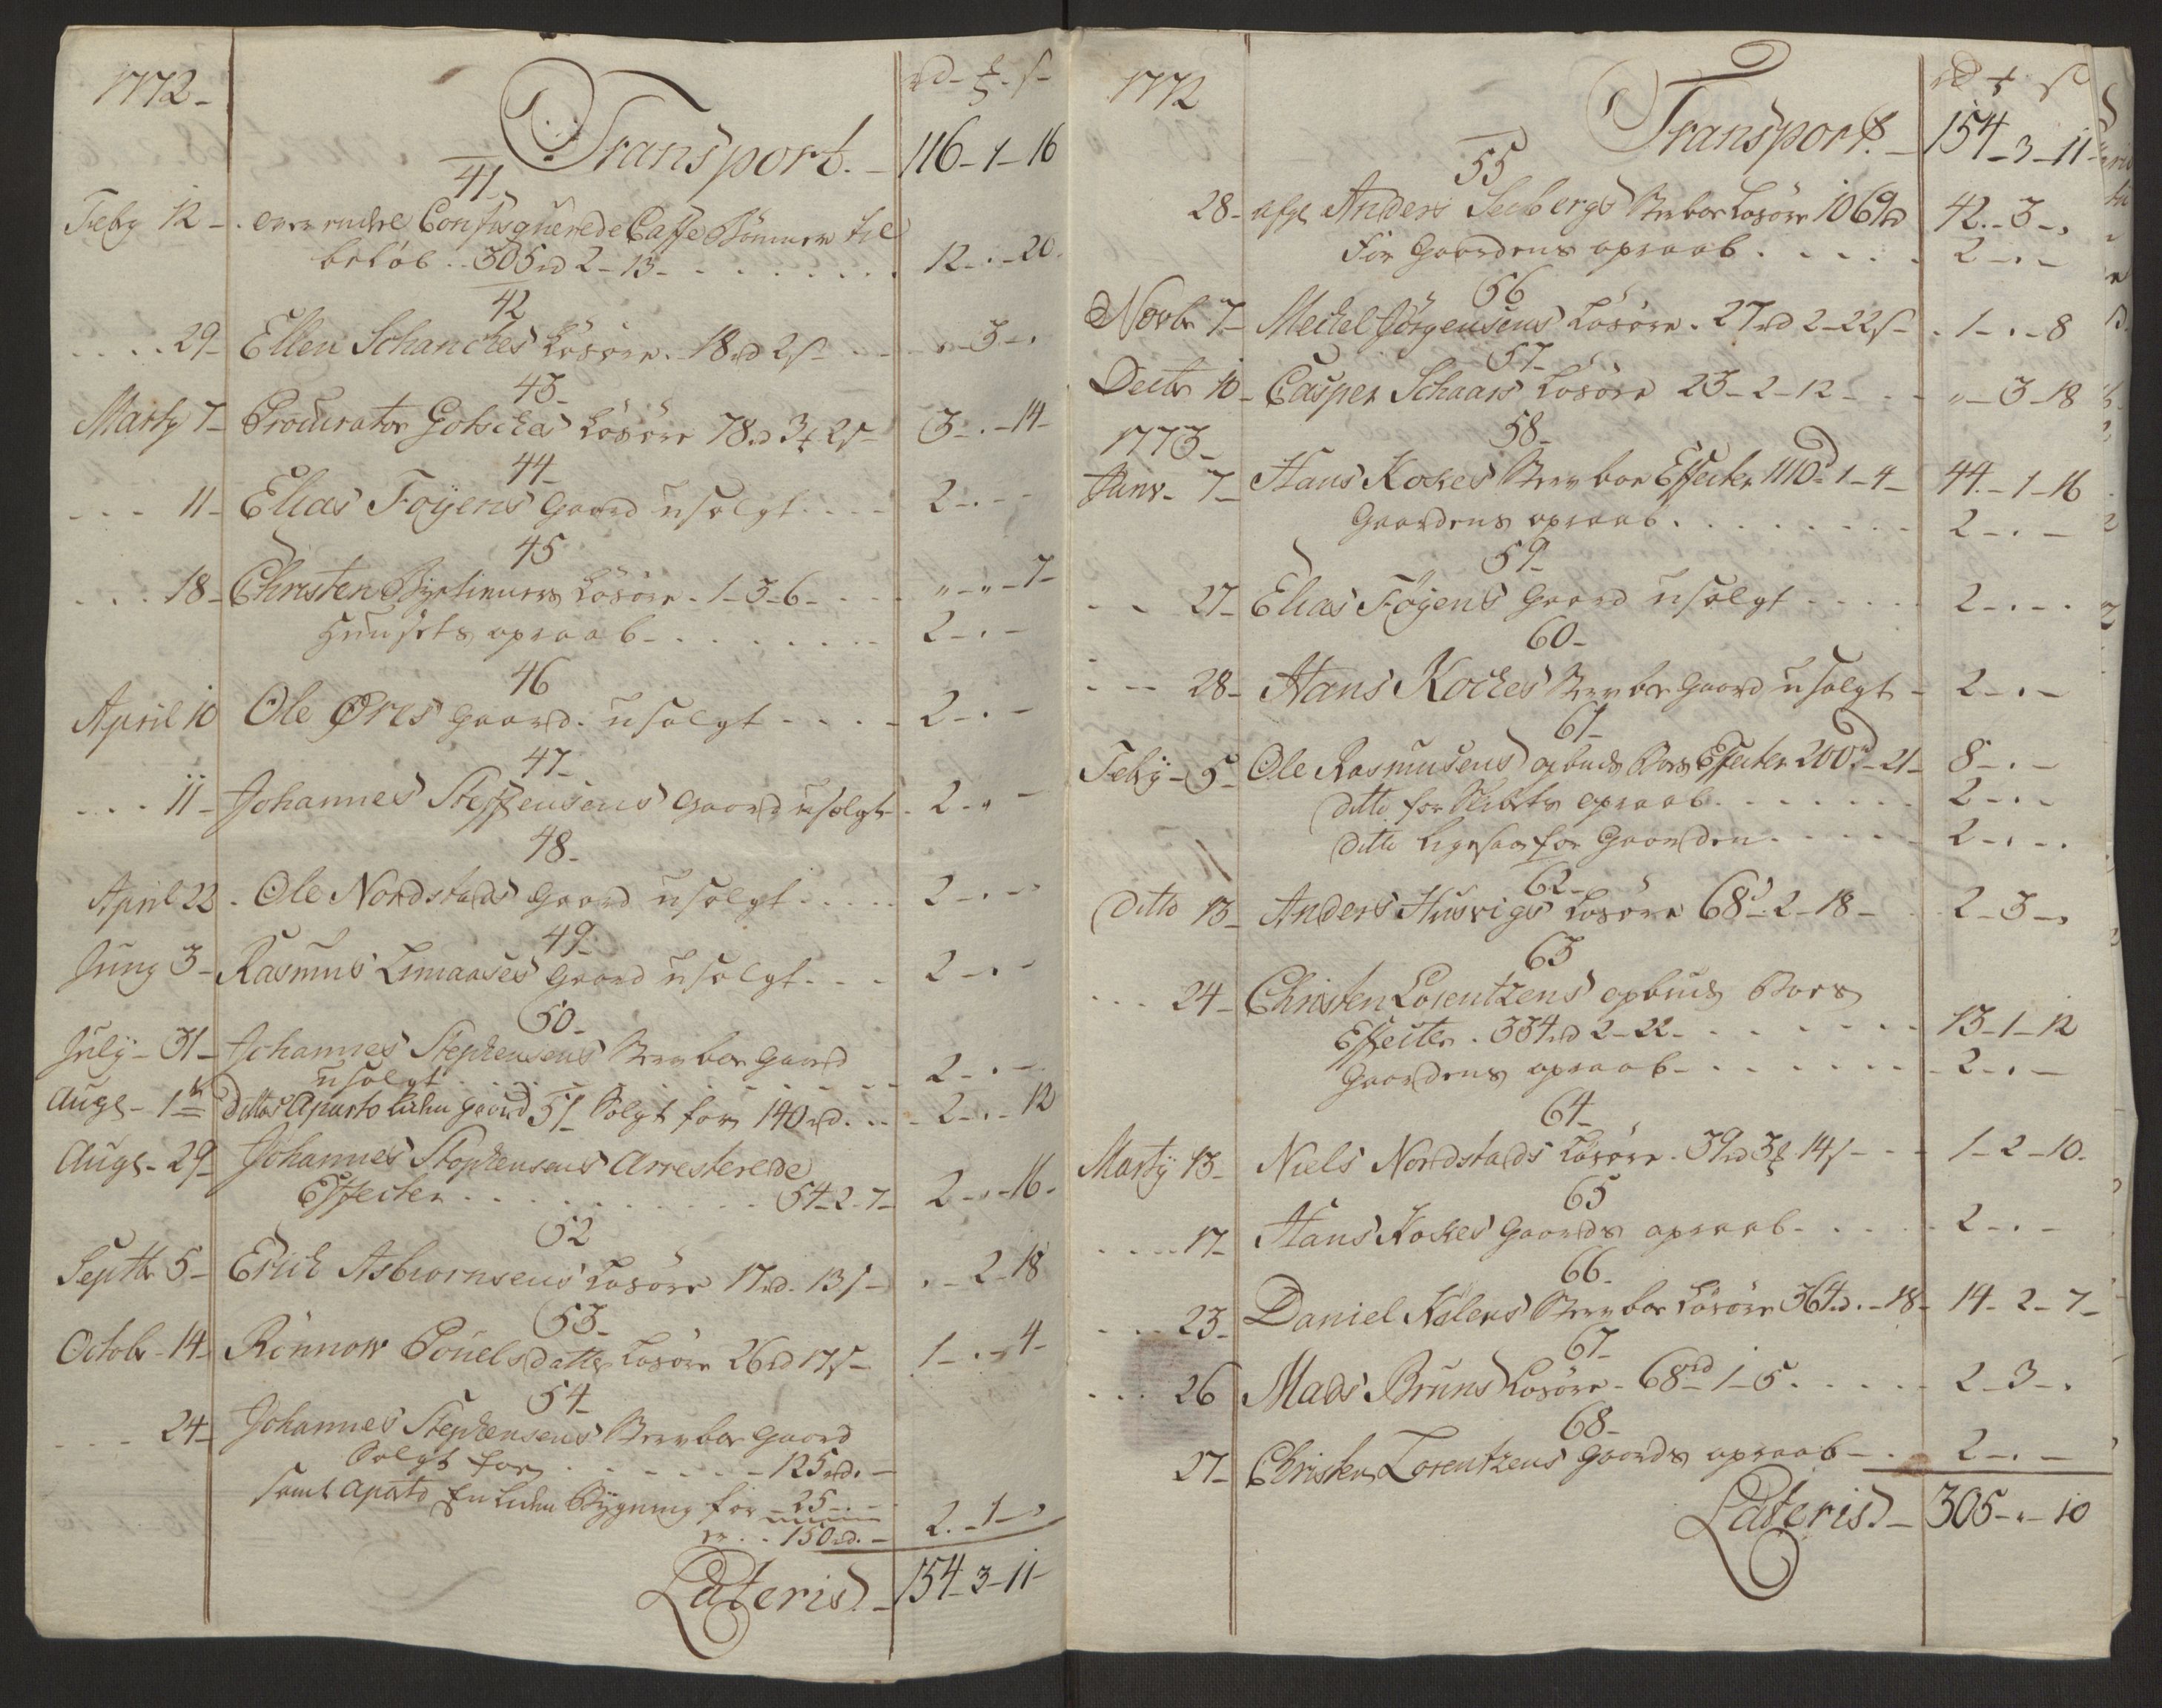 1772 -
rd - ƶ - s -
Transport. - 116 - 1 - 16
41 -
Feby 12 - over endeel Confisquerede Caffe Bönner til
belöb .. 305 rd 2 - 13 - . . . . . 12 - . - 20.
42
. . . . 29 - Ellen Schanches Lösöre - 18 rd 2 s - . . - „ - 3 - .
43 -
Marty 7 - Procurator Gotschas Lösöre 78 rd 3 ƶ 2 s - 3 - . - 14 -
44 -
- - - 11 - Elias Foÿens Gaard usolgt . . . . 2 - . - -
45
. . . 18 - Christen Lösöre - 1 - 3 - 6 - . . . „ - „ - 7 -
Huusets opraab - . . . . . . . 2 - . -
46
April 10 Ole Öres Gaard usolgt - . . . 2 - . -
47 -
. . . 11 - Johannes Steffensens Gaard usolgt - 2 - „ -
48 -
April 22 . Ole Nordstads Gaard usolgt . . . . . 2 - . -
49 -
Juny 3 - Rasmus Limaases Gaard usolgt . . . 2 - . -
50 -
Julÿ - 31 - Johannes Stephensens Sterboe Gaard
usolgt . . . . . . . 2 - . -
Augs - 1 Dittos aparte liden Gaard 51 Solgt for 140 rd. . . . 2 - . - 12
Augs - 29 - Johannes Stephensens Arresterede
Effecter . . . . . . . . 54 - 2 - 7 - 2 - „ - 16 -
52
Septbr 5 - Erich Asbiornsens Lösöre 17 rd. 13 s - . - 2 - 18
53 -
Octobr - 14 - Rönnow Pouelsdatter Lösöre 26 rd 17 s - 1 - . - 4 -
54 -
. . . 24 - Johannes Stephensens Sterboe Gaard
Solgt for . . . . . . - 125 rd. -
samt aparte En liden Bygning for - 25 - . -
er . . 150 rd. - 2. - 1 - „
Lateris. - 154 - 3 - 11 -
1772
rd ƶ s
Transport. - 154 - 3 - 11 -
55
28 - afgl Anders Seebergs Sterboe Lösöre 1069 rd 42. - 3 - „
For Gaardens opraab . . . . . 2 - . -
56
Novbr 7 - Mechel Jörgensens Lösöre - 27 rd 2 - 22 s - . 1 - . - 8
57 -
Decbr 10 - Casper Schaars Lösöre 23 - 2 - 12 - . - „ - 3 - 18
1773 -
58 -
Janv - 7 - Hans Kokes Sterboe Effecter 1110 d 1 - 4 - 44. - 1 - 16
Gaardens opraab . . . . . . . . 2 - . -
59 -
- - 27 - Elias Föÿens Gaard usolgt . . . . . 2 - . - .
60 -
- - - 28 - Hans Koches Sterboe Gaard usolgt - 2 - . -
61 -
Febÿ - 5 - Ole Rasmusens opbuds Boes Effecter 200 d - 21 - 8 - . -
ditto for Skibets opraab . . . . . . . 2 - . -
ditto ligesaa for Gaarden . . . . . 2 - . - .
62 -
Ditto 13 - Anders Husvigs Lösöre 68 d 2 - 18 - . 2 - 3 - „
63
. . . 24 - Christen Lorentzens opbuds Boes
Effecter . 334 rd 2 - 22 - . . . . . . . 13 - 1 - 12
Gaardens opraab - . . . . . . 2 - . -
64 -
Martÿ 13 - Niels Nordstads Lösöre . 39 rd 3 ƶ 14 s - . . 1 - 2 - 10 -
65
. . . . 17 - Hans Kokes Gaards opraab - . . . . 2 - . -
66 -
. . . 23 - Daniel Kölers Sterboe Lösöre 364 d. - 18 - 14 - 2 - 7 -
67 -
. . . 26 Mads Bruns Lösöre - 68 rd 1 - 5 . . . . . 2 - 3 - .
68 -
27 - Christen Lorentzens Gaards opraab - . 2 - . -
Lateris. - 305 - „ - 10